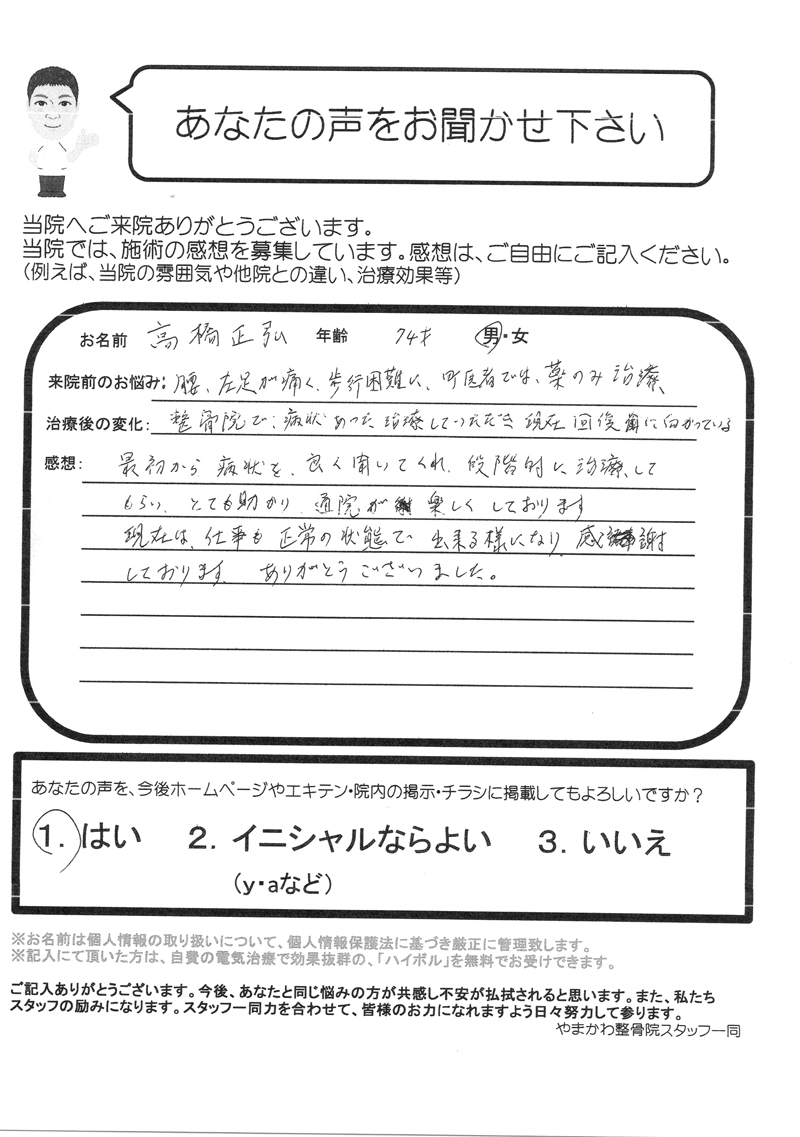 あなたの声をお聞かせ下さい
当院へご来院ありがとうございます。
当院では、施術の感想を募集しています。感想は、ご自由にご記入ください。
(例えば、当院の雰囲気や他院との違い、治療効果等)
お名前 高橋正弘 年齢 74才 男・女
来院前のお悩み: 腰、左足が痛く、歩行困難に、町医者では、薬のみ治療、
治療後の変化: 整骨院で、病状あった治療していただき現在回復に向かっている
感想: 最初から病状を、良く聞いてくれ、段階的に治療して
もらい、とても助かり、通院が楽しくしております
現在は、仕事も正常の状態で出来る様になり、感謝
しております。ありがとうございました。
あなたの声を、今後ホームページやエキテン・院内の掲示・チラシに掲載してもよろしいですか?
1. はい 2. イニシャルならよい 3. いいえ
(y・aなど)
※お名前は個人情報の取り扱いについて、個人情報保護法に基づき厳正に管理致します。
※記入にて頂いた方は、自費の電気治療で効果抜群の、「ハイボル」を無料でお受けできます。
ご記入ありがとうございます。今後、あなたと同じ悩みの方が共感し不安が払拭されると思います。また、私たち
スタッフの励みになります。スタッフ一同力を合わせて、皆様のお力になれますよう日々努力して参ります。
やまかわ整骨院スタッフ一同